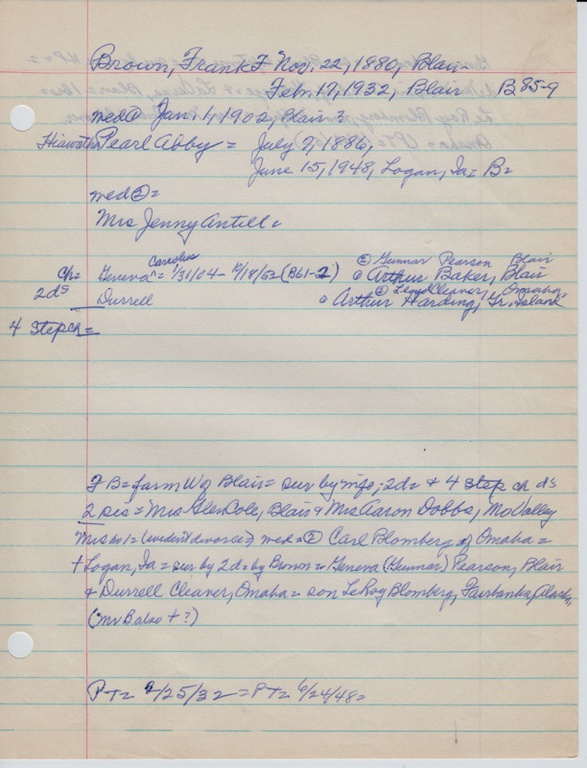 Brown, Frank F Nov. 22, 1880, Blair-
Feb. 17, 1932, Blair B85-9
med① Jan. 1, 1902, Blair ?
Hiawatha Pearl Abby = July 7, 1886,
June 15, 1948, Logan, Ia = B=
med②=
Mrs Jenny Antill=
Carolus ② Gunnar Pearson Blair
ch= Geneva^ = 1/31/04 - 10/18/52 (B61-2) ① Arthur Baker, Blair
② Lloyd Cleaver, Omaha
2ds Durrell ① Arthur Harding, Gr. Island
4 Step ch =
F B= farm W of Blair= sur by wife; 2d= + 4 step ch ds
2 sis= Mrs Glen Cole, Blair + Mrs Aaron Dobbs, Mo Valley
Mrs no 1= (evident divorce?) med=② Carl Blomberg of Omaha=
+ Logan, Ia= sur by 2d= by Brown= Geneva (Gunnar) Pearson, Blair
+ Durrell Cleaver, Omaha= son LeRoy Blomberg, Fairbanks, Alaska,
(Mr + ?)
PT= 2/25/32 = PT= 6/24/48=